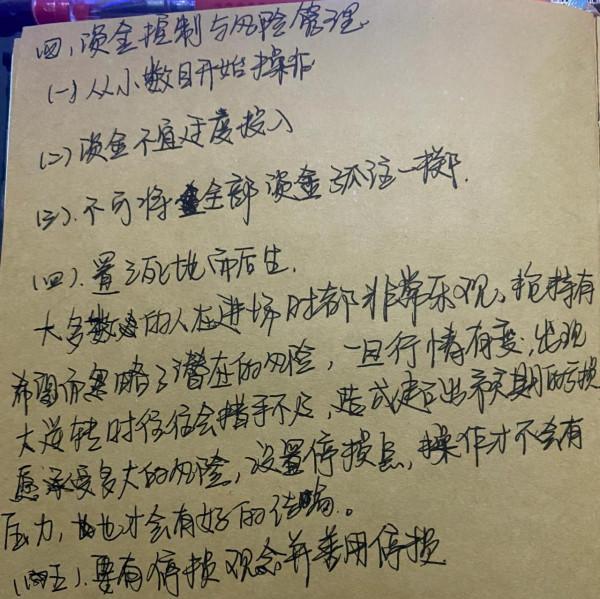 四、资金控制与风险管理
(一)从小数目开始操作
(二)资金不宜过度投入
(三).不可将全部资金孤注一掷.
(四).置之死地而后生.
大多数的人在进场时都非常乐观、抱持有
希望而忽略了潜在的风险，一旦行情有变，出现
大逆转时往往会措手不及，造成超出预期的亏损
愿承受多大的风险，设置停损点，操作才不会有
压力，也才会有好的结论。
(五).要有停损观念并善用停损